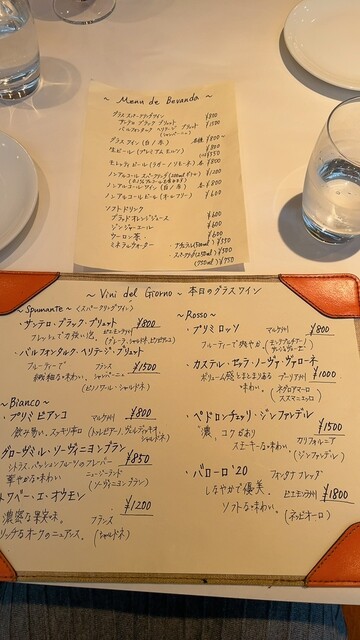 ~ Menu de Bevanda ~
グラススパークリングワイン ¥800
サンテロ ブラック ブリュット ¥1500
パルフォンタルク ヘリテージ ブリュット
(シャンパーニュ)
グラスワイン (白/赤) 各種 ¥800~
生ビール (プレミアムモルツ) ¥800
モレッティビール 各 ¥800
ノンアルコールスパークリング (200ml ボトル) ¥1200
ノンアルコールワイン (白/赤) 各 ¥800
ノンアルコールビール (オールフリー) ¥600
ソフトドリンク
ブラッドオレンジジュース ¥600
ジンジャーエール ¥600
ウーロン茶 ¥600
ミネラルウォーター ・アクアパンナ(500ml) ¥550
・スルジーヴァ(500ml) ¥550
(750ml) ¥750
~ Vini del Giorno ~ 本日のグラスワイン
~ Spumante ~ (スパークリングワイン)
・サンテロ・ブラック・ブリュット ¥800
フレッシュで力強い泡。 ピエモンテ州
・パルフォンタルク・ヘリテージ・ブリュット
フルーティーで フランス ¥1500
繊細な味わい。 シャンパーニュ
(ピノノワール・シャルドネ)
~ Bianco ~
・プリミ ビアンコ マルケ州 ¥800
飲み易い、スッキリ辛口 (トレッビアーノ、ヴェルディッキオ、
シャルドネ)
グローヴミル・ソーヴィニヨンブラン
シトラス、パッションフルーツのフレーバー ¥850
華やかな味わい ニュージーランド
(ソーヴィニヨンブラン)
¥1200
濃密な果実味。 フランス
リッチなオークのニュアンス。 (シャルドネ)
~ Rosso ~
・プリミ ロッソ マルケ州 ¥800
フルーティーで爽やか (モンテプルチアーノ
サンジョヴェーゼ)
・カステル・セッラ・ノーヴァ・ヴァローネ
ボリューム感とまとまりある プーリア州 ¥1000
味わい。 (ネグロアマーロ
ススマニエッロ)
・ペドロンチェッリ・ジンファンデル
濃く、コクがあり ¥1500
スモーキーな味わい。 カリフォルニア
(ジンファンデル)
・バローロ '20 フォンタナフレッダ
しなやかで優美。 ピエモンテ州 ¥1800
ソフトな味わい。 (ネッビオーロ)